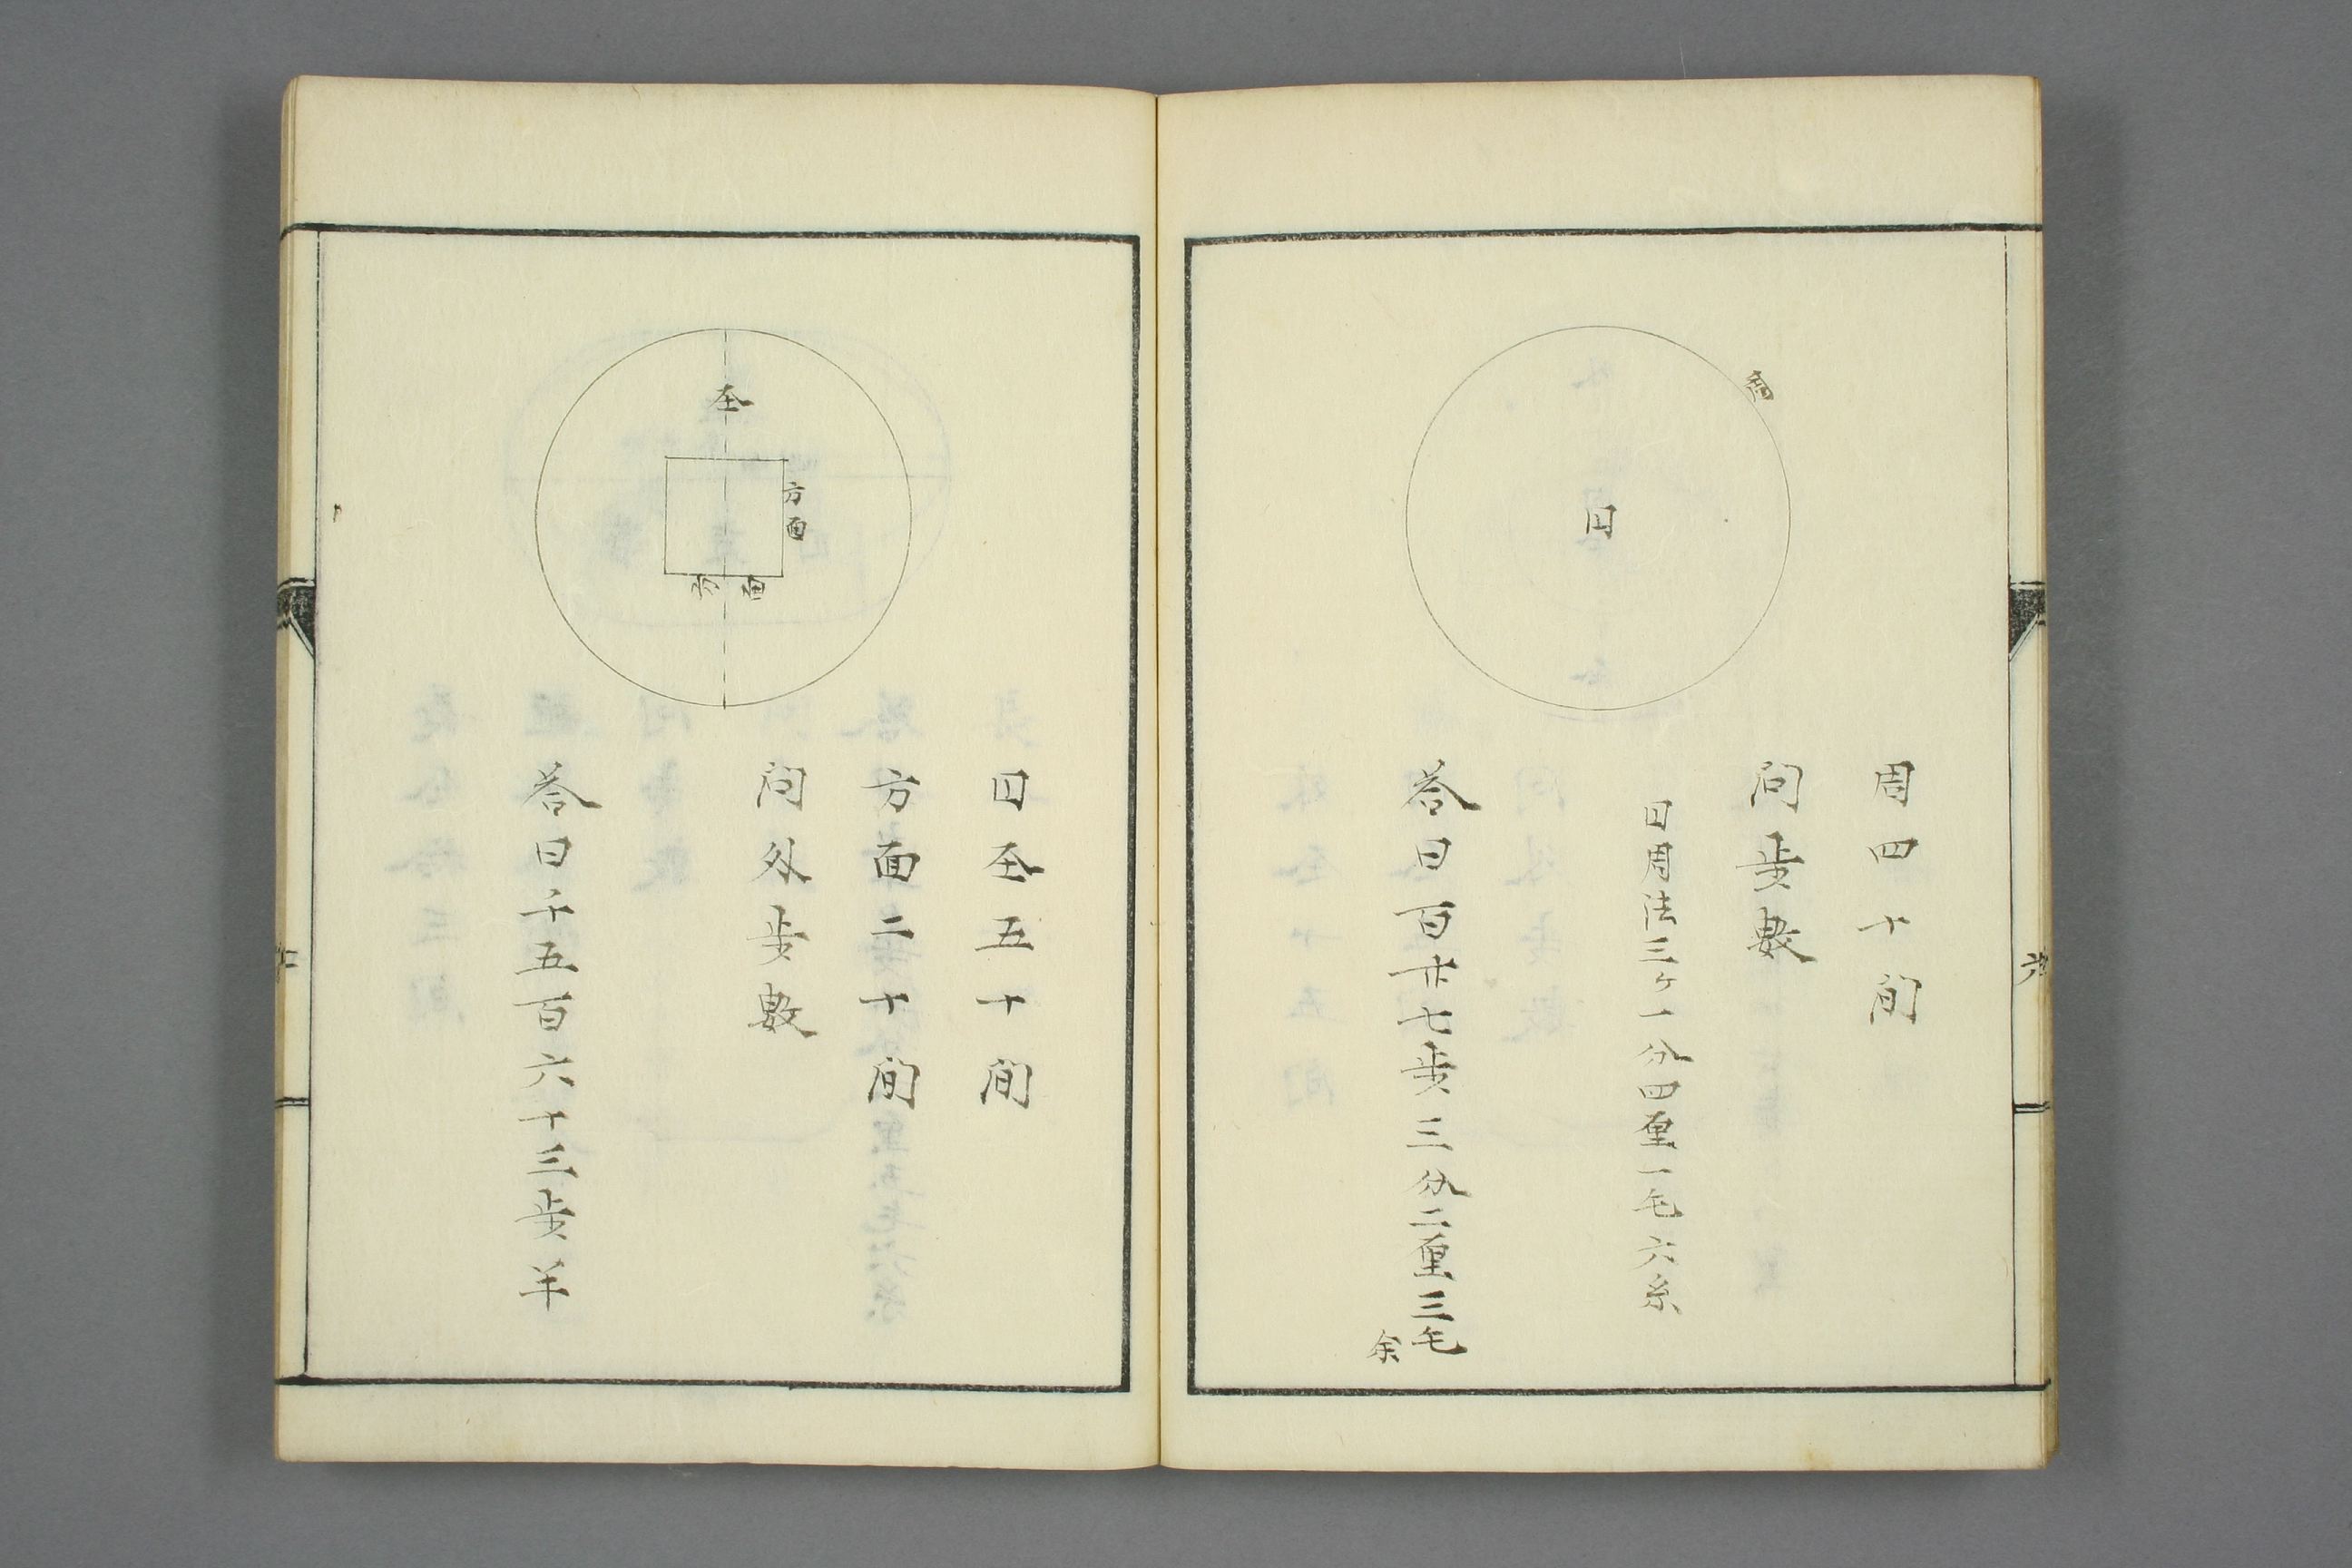 周
円
周四十間
問歩數
円周法三ヶ一分四厘一毛六糸
荅曰百廿七歩三分二厘三毛余
六
圣
方面
方面
円圣五十間
方面二十間
問外歩數
荅曰千五百六十三歩半